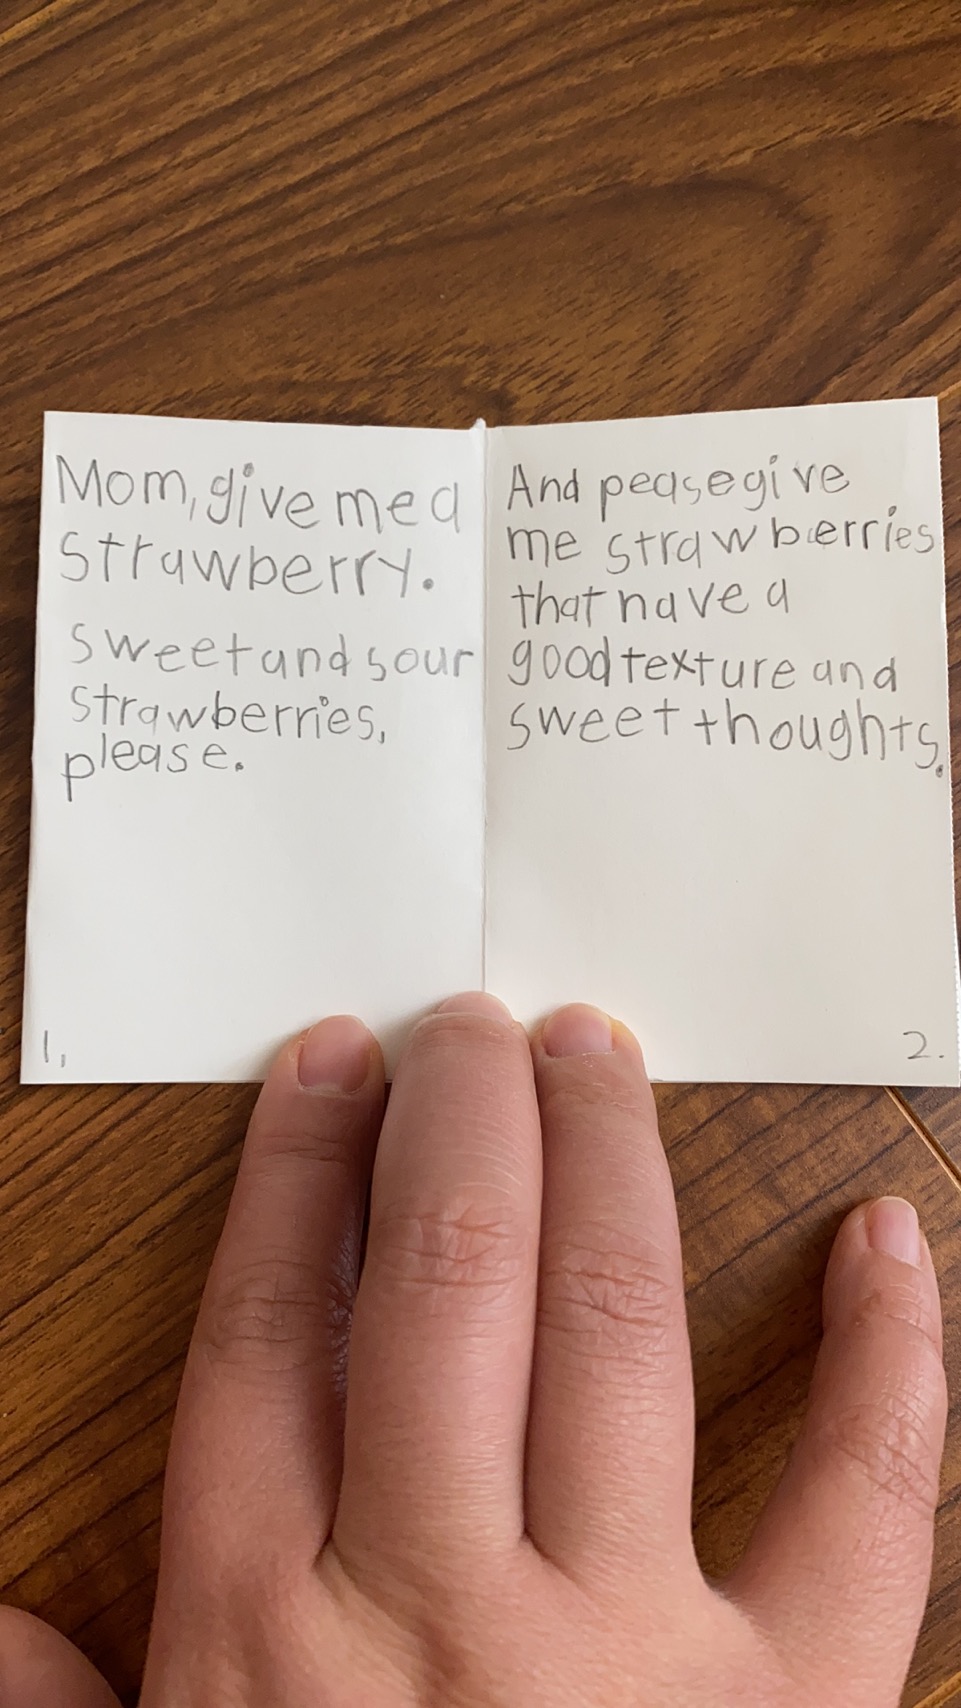 Mom, give me a
strawberry.
sweet and sour
strawberries,
please.
1,
And pease give
me strawberries
that have a
good texture and
sweet thoughts.
2.